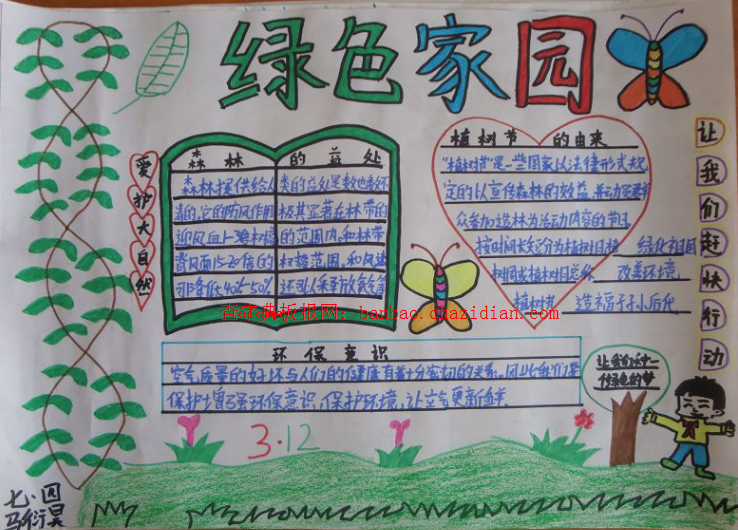 绿色家园
爱护大自然
森林的益处
森林提供给人类的益处是数也数不
清的,它的防风作用极其显著在林带的
迎风面
的范围内,和林带
背风面15-20倍的
范围,和风速
可降低40%-50%
植树节的由来
“植树节”是一些国家以法律形式规
定的以宣传森林的效益,并动员群
众参加造林为活动内容的节日
按时间长短分为植树日植
绿化祖国
树周或植树月总称
改善环境
植树节
造福子子小后代
让我们赶快行动
环保意识
空气质量的好坏与人们的健康有着十分密切的关系,因此我们要
保护增强环保意识,保护环境,让空气更新鲜
让我们来一
绿色的梦
3.12
七·四
马衍昊
老字典板报网: banbao.chazidian.com